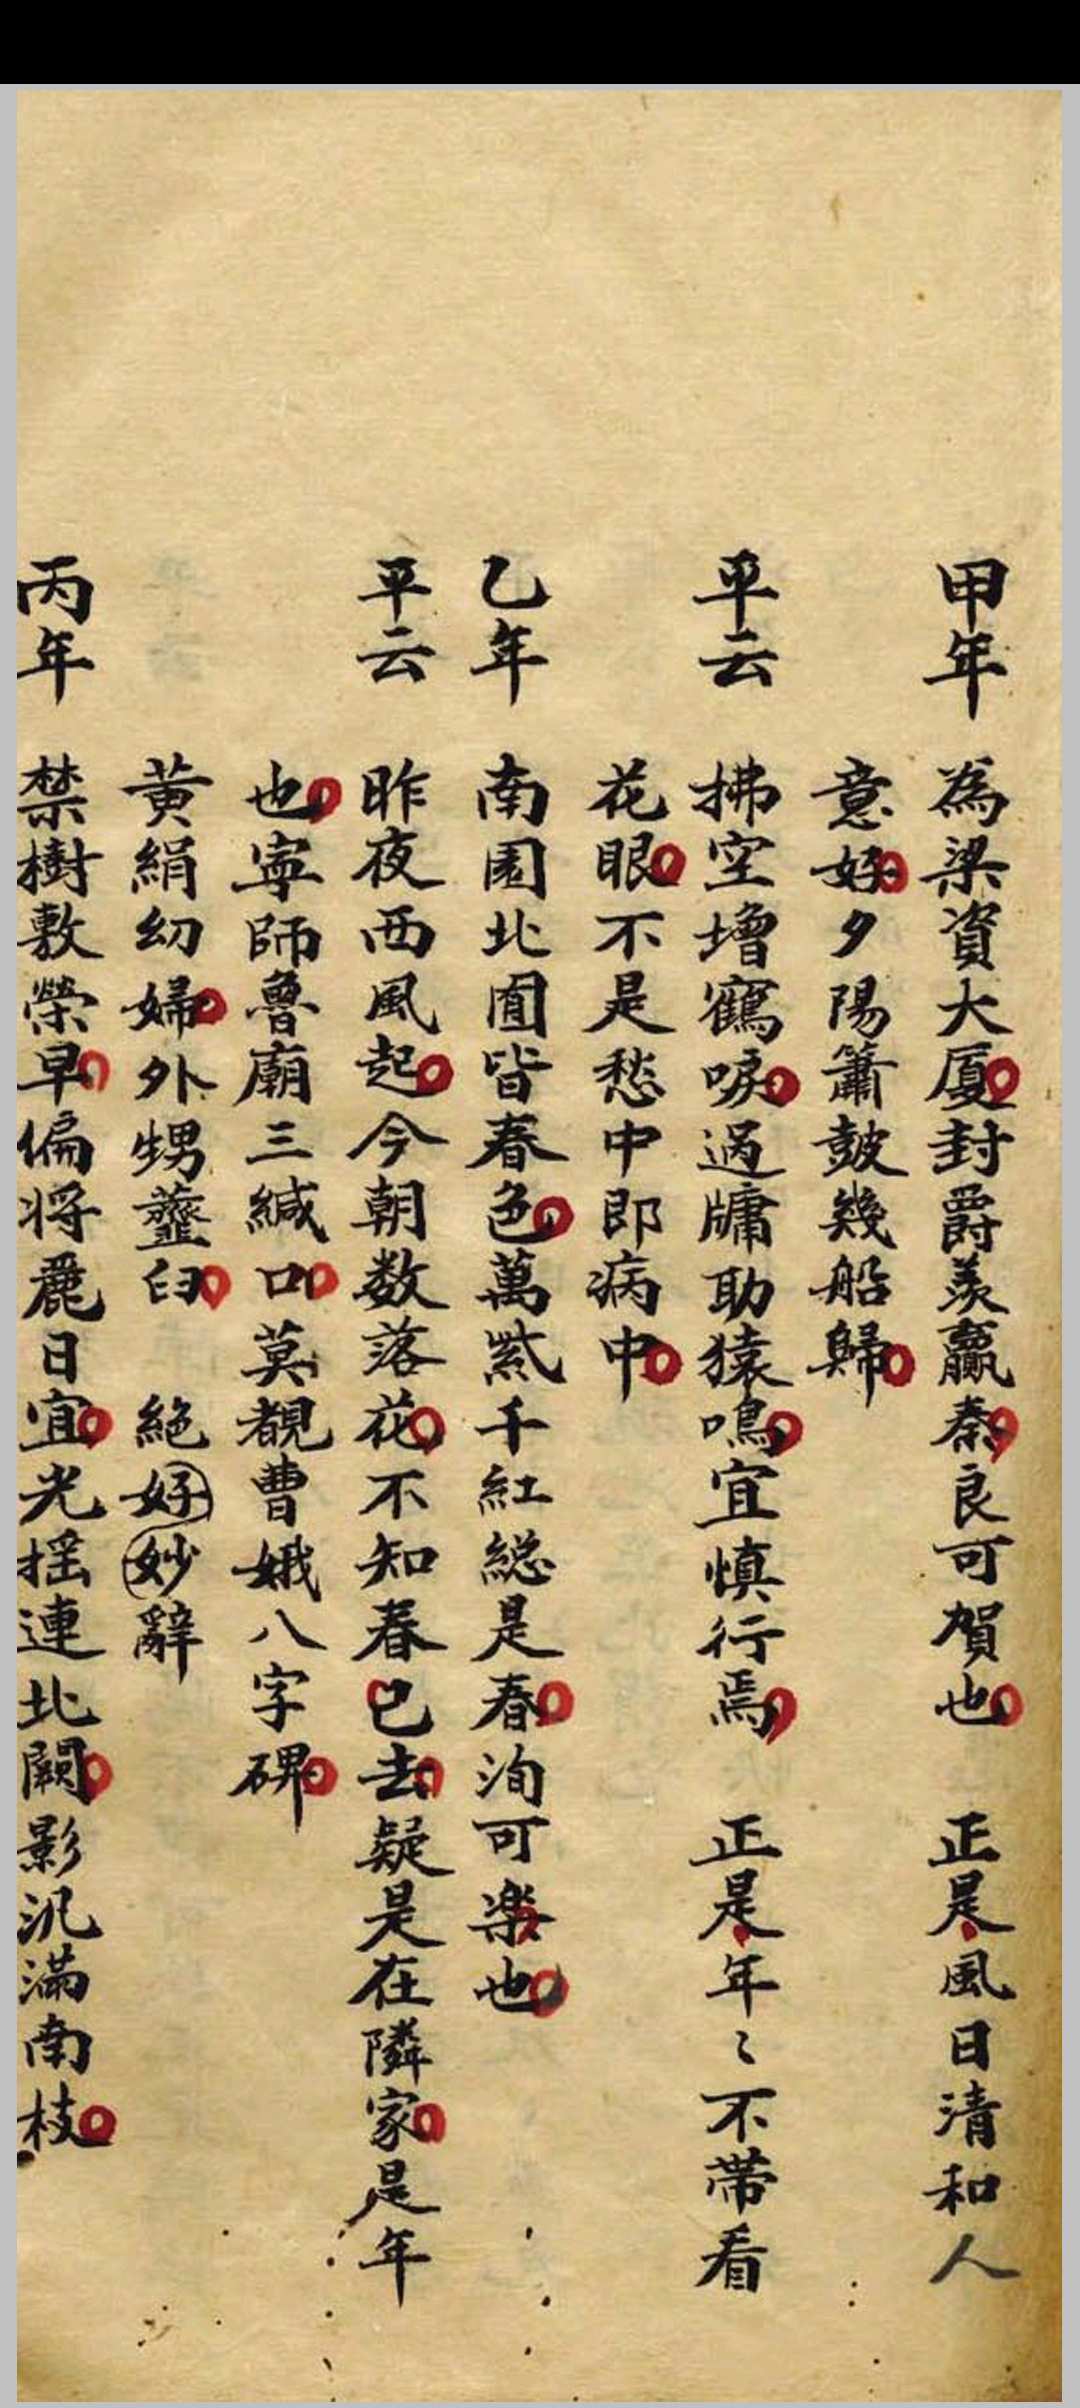 甲年 為梁資大厦封爵羨嬴秦良可賀也 正是風日清和人
意好夕陽簫鼓幾船歸
平云 拂空增鶴唳過牗助猿鳴宜慎行焉 正是年〻不帶看
花眼不是愁中即病中
乙年 南園北囿皆春色萬紫千紅総是春洵可樂也
平云 昨夜西風起今朝数落花不知春已去疑是在隣家是年
也寧師魯廟三緘口莫覩曹娥八字碑
黃絹幼婦外甥虀臼 絶好妙辭
丙年 禁樹敷榮早偏将麗日宜光揺連北闕影汎滿南枝